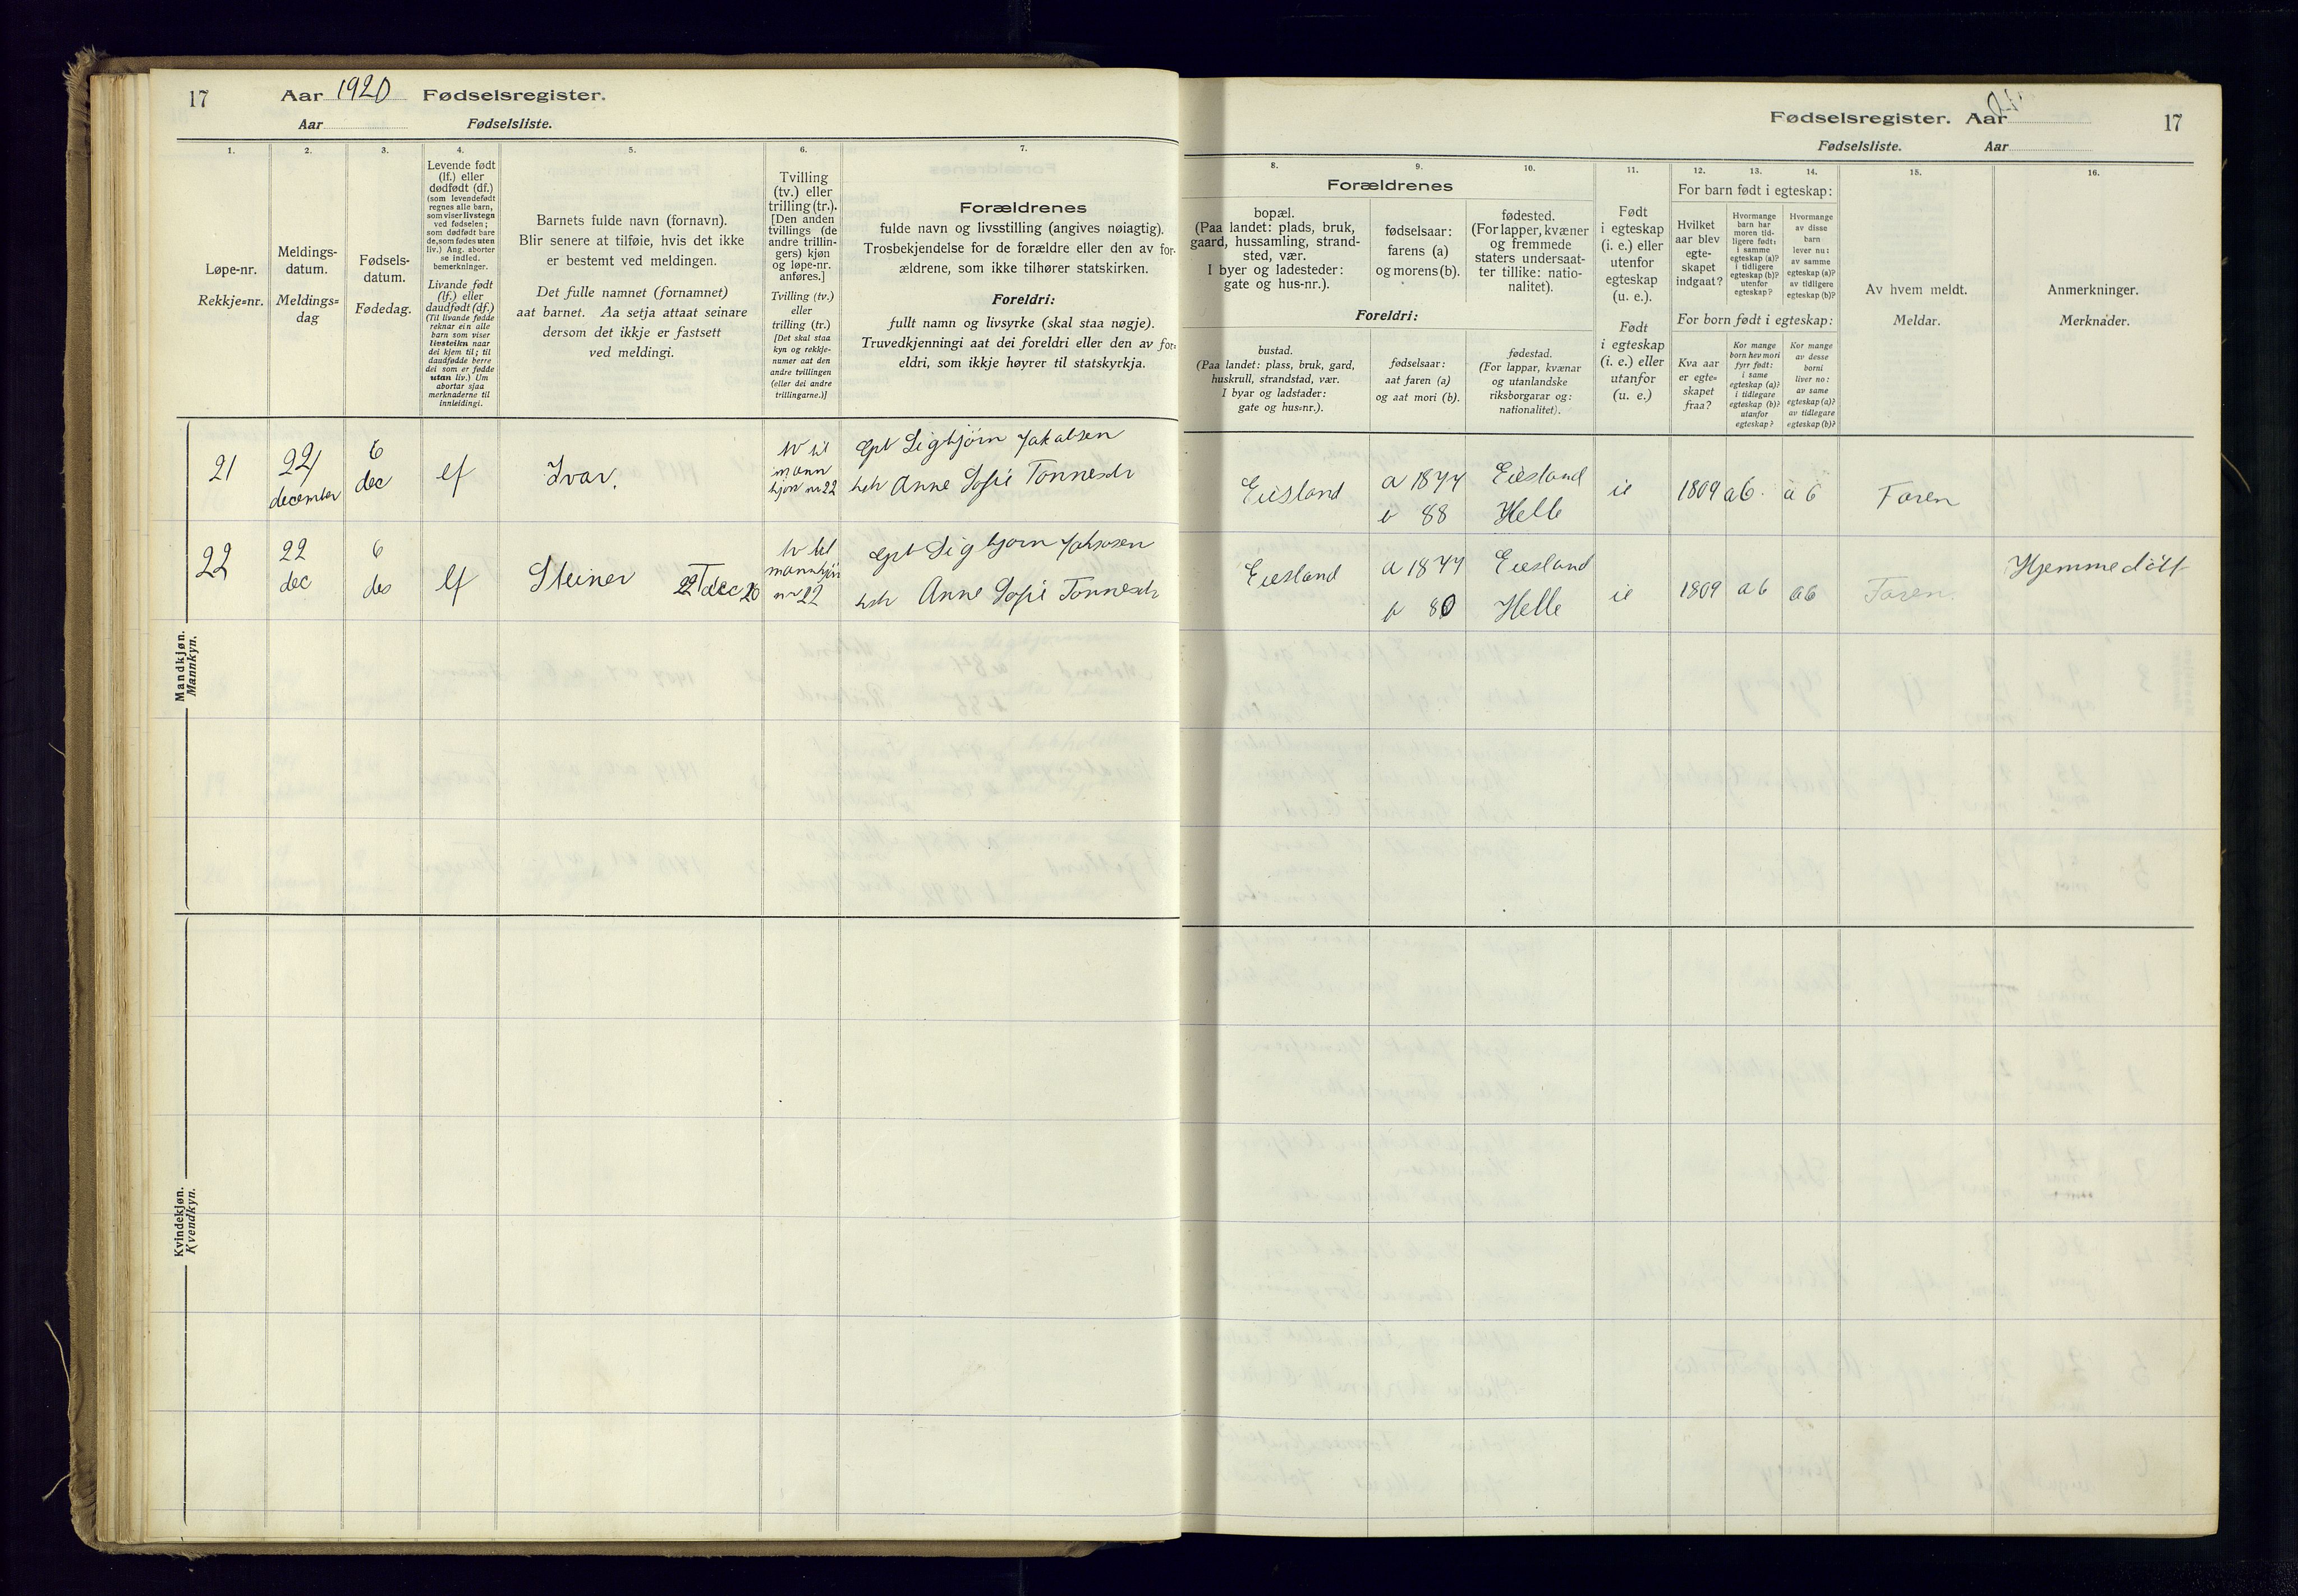 17
Aar 1920 Fødselsregister.
Aar Fødselsliste.
1.
2.
3.
4.
5.
6.
7.
Løpe-nr.
Rekkje=nr.
Meldings-
datum.
Meldings=
dag
Fødsels-
datum.
Fødedag.
Levende født
(lf.) eller
dødfødt (df.)
(som levendefødt
regnes alle barn,
som viser livstegn
ved fødselen;
som dødfødt bare
de, som fødes uten
liv.) Ang. aborter
se indled.
bemerkninger.
Livande født
(lf.) eller
daudfødt (df.)
(Til livande fødde
reknar ein alle
barn som viser
livsteikn naar
dei kjem til; til
daudfødde berre
dei som er fødde
utan liv.) Um
abortar sjaa
merknaderne til
innleidingi.
Barnets fulde navn (fornavn).
Blir senere at tilføie, hvis det ikke
er bestemt ved meldingen.
Det fulle namnet (fornamnet)
aat barnet. Aa setja attaat seinare
dersom det ikkje er fastsett
ved meldingi.
Tvilling
(tv.) eller
trilling (tr.).
[Den anden
tvillings (de
andre trillin-
gers) kjøn
og løpe-nr.
anføres.]
Tvilling (tv.)
eller
trilling (tr.)
[Det skal staa
kyn og rekkje-
numer aat den
andre tvillingen
(eller dei andre
trillingarne.)]
Forældrenes
fulde navn og livsstilling (angives nøiagtig).
Trosbekjendelse for de forældre eller den av for-
ældrene, som ikke tilhører statskirken.
Foreldri:
fullt namn og livsyrke (skal staa nøgje).
Truvedkjenningi aat dei foreldri eller den av for-
eldri, som ikkje høyrer til statskyrkja.
Mandkjøn.
Mannkyn.
21
22
december
6
dec
lf
Ivar.
tv til
mann
kjøn nr 22
Gpt Sigbjørn Jakobsen
hsh Anne Sofie Tønnesdr
22
22
dec
6
des
lf
Steiner
22 dec 20
tv til
mannkjøn
nr 22
Gpt Sigbjørn Jakobsen
hsh Anne Sofie Tønnesdr
Kvindekjøn.
Kvendkyn.
Fødselsregister. Aar
17
Fødselsliste. Aar
8.
9.
10.
11.
12.
13.
14.
15.
16.
Forældrenes
bopæl.
(Paa landet: plads, bruk,
gaard, hussamling, strand-
sted, vær.
I byer og ladesteder:
gate og hus-nr.).
fødselsaar:
farens (a)
og morens (b).
fødested.
(For lapper, kvæner
og fremmede
staters undersaat-
ter tillike: natio-
nalitet).
Foreldri:
bustad.
(Paa landet: plass, bruk, gard,
huskrull, strandstad, vær.
I byar og ladstader:
gate og hus=nr.).
fødselsaar:
aat faren (a)
og aat mori (b).
fødestad.
(For lappar, kvænar
og utanlandske
riksborgarar og:
nationalitet).
Født
i egteskap
(i. e.) eller
utenfor
egteskap
(u. e.).
Født
i egteskap
(i. e.) eller
utanfor
(u. e.)
For barn født i egteskap:
Hvilket
aar blev
egte-
skapet
indgaat?
Hvormange
barn har
moren tid-
ligere født:
i samme
egteskap (a)?
i tidligere
egteskap (b)?
utenfor
egteskap?
Hvormange
av disse
barn
lever nu:
av samme
egteskap (a)?
av tidligere
egteskap (b)?
For born født i egteskap:
Kva aar
er egte=
skapet
fraa?
Kor mange
born hev mori
fyrr født:
i same
egteskap (a)?
i tidlegare
egteskap (b)?
utanfor
egteskap?
Kor mange
av desse
borni
liver no:
av same
egteskap (a)?
av tidlegare
egteskap (b)?
Av hvem meldt.
Meldar.
Anmerkninger.
Merknader.
Eiesland
a 1877
b 88
Eiesland
Helle
ie
1809
a 6
a 6
Faren
Eiesland
a 1877
b 80
Eiesland
Helle
ie
1809
a 6
a 6
Faren.
Hjemmedøpt